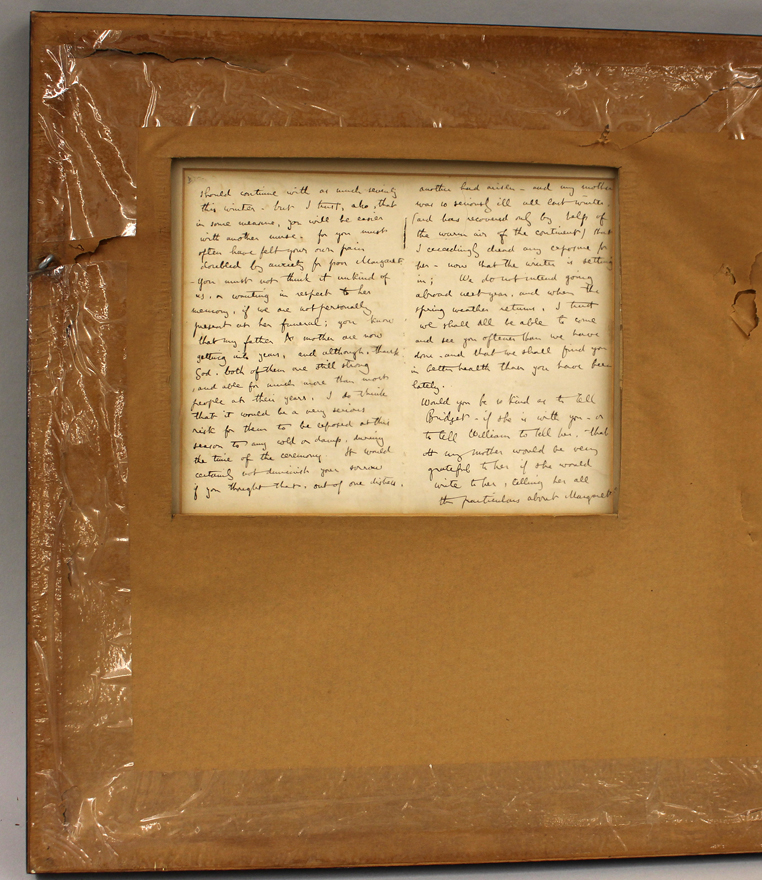 should continue with as much severity
this winter - but I trust, also, that
in some measure, you will be easier
with another nurse. for you must
often have felt your own pain
doubled by anxiety for poor Margaret.
you must not think it unkind of
us, or wanting in respect to her
memory, if we are not personally
present at her funeral; you know
that my father & mother are now
getting into years, and although, thank
God, both of them are still strong
and able for much more than most
people at their years, I do think
that it would be a very serious
risk for them to be exposed at this
season to any cold or damp, during
the time of the ceremony. It would
certainly not diminish your sorrow
if you thought that, out of one distress,
another had arisen - and my mother
was so seriously ill all last winter
(and has recovered only by help of
the warm air of the continent) that
I exceedingly dread any exposure for
her - now that the winter is setting
in; We do not intend going
abroad next year, and when the
spring weather returns, I trust
we shall all be able to come
and see you oftener than we have
done, and that we shall find you
in better health than you have been
lately.
Would you be so kind as to tell
Bridget - if she is with you - or
to tell William to tell her, that
my mother would be very
grateful to her if she would
write to her, telling her all
the particulars about Margaret